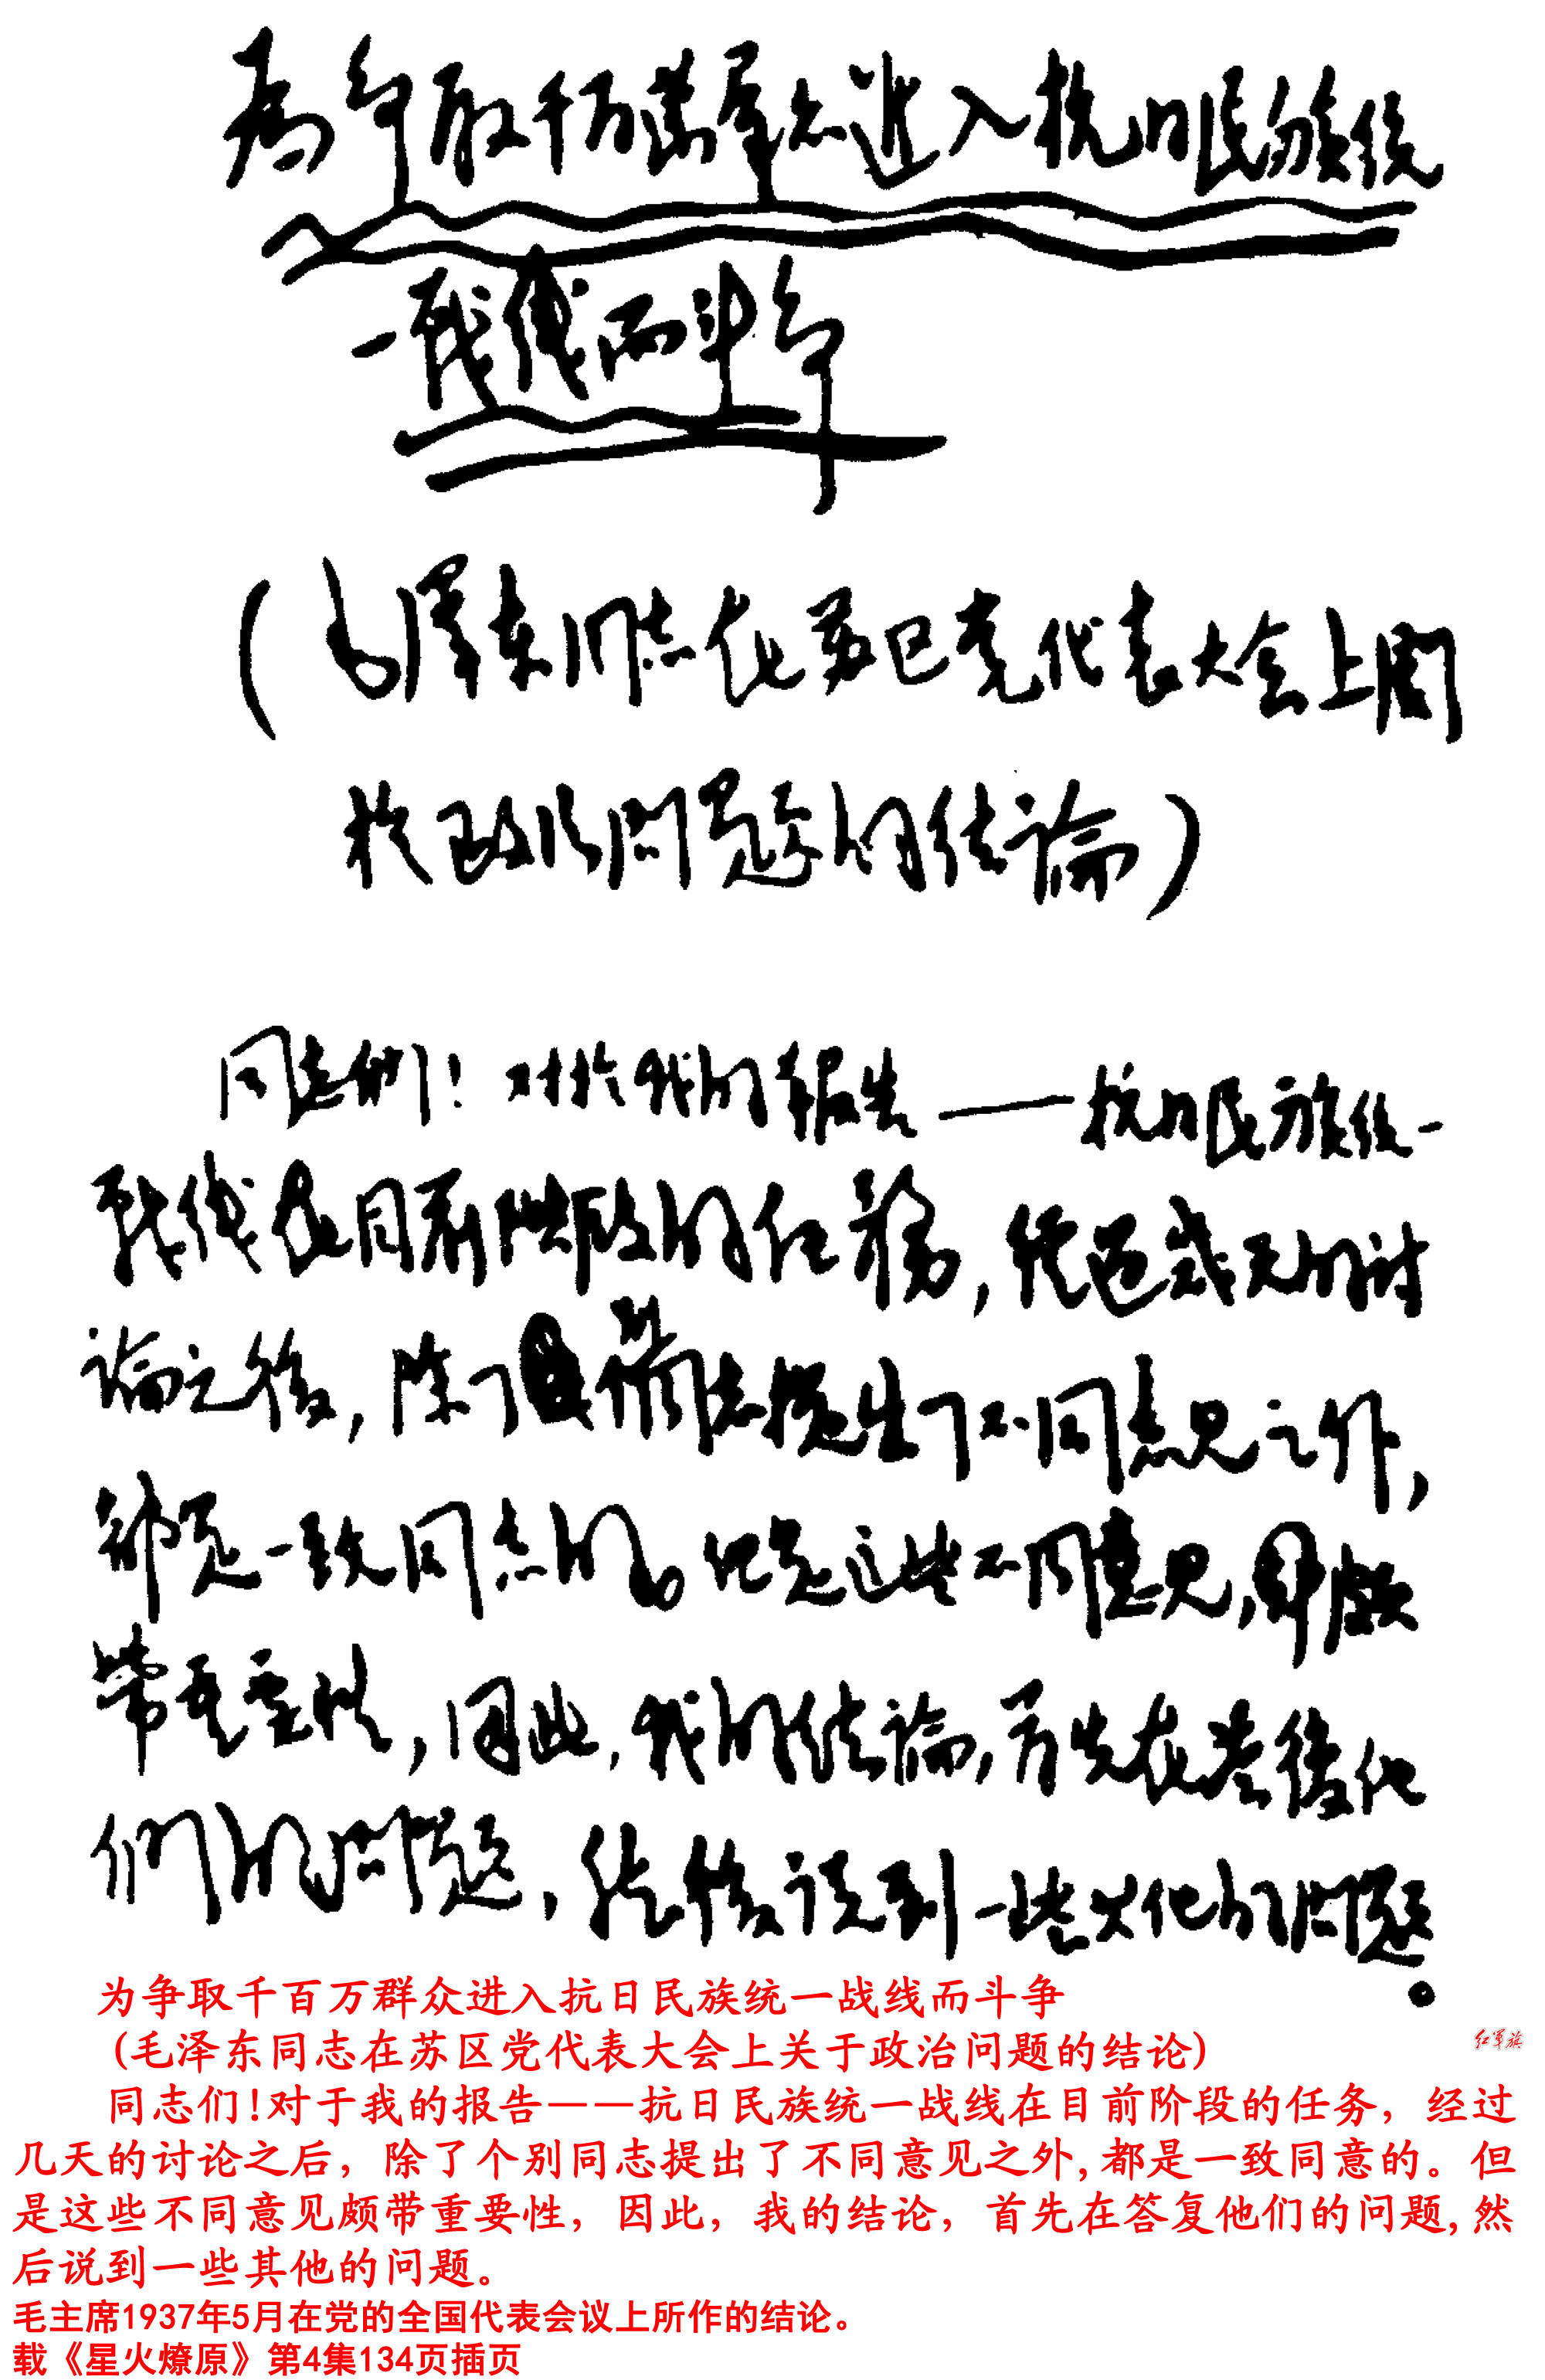 为争取千万群众进入抗日民族统
一战线而斗争
（毛泽东同志在苏区党代表大会上関
於政治问题的结论）
同志们！对於我的报告——抗日民族统一
战线在目前阶段的任務，经过几天的讨
论之後，除了个别同志提出了不同意见之外，
都是一致同意的。但是这些不同意见，即颇
带重要性，因此，我的结论，首先在答復他
们的问题，然後说到一些其他的问题。
为争取千百万群众进入抗日民族统一战线而斗争
(毛泽东同志在苏区党代表大会上关于政治问题的结论)
红军旗
同志们!对于我的报告——抗日民族统一战线在目前阶段的任务，经过
几天的讨论之后，除了个别同志提出了不同意见之外,都是一致同意的。但
是这些不同意见颇带重要性，因此，我的结论，首先在答复他们的问题,然
后说到一些其他的问题。
毛主席1937年5月在党的全国代表会议上所作的结论。
载《星火燎原》第4集134页插页